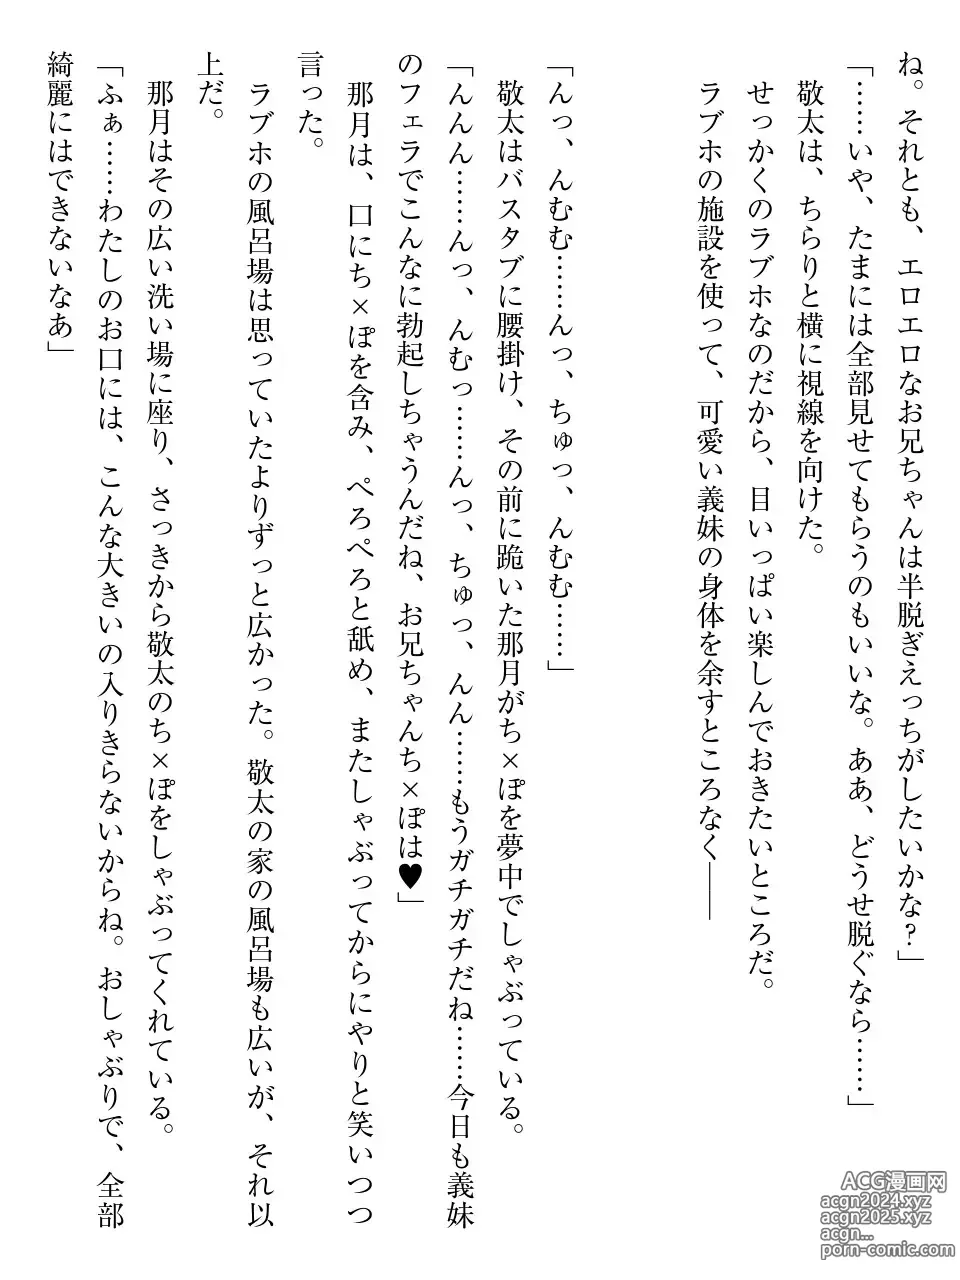 ね。それとも、エロエロなお兄ちゃんは半脱ぎえっちがしたいかな?」
「……いや、たまには全部見せてもらうのもいいな。ああ、どうせ脱ぐなら……」
敬太は、ちらりと横に視線を向けた。
せっかくのラブホなのだから、目いっぱい楽しんでおきたいところだ。
ラブホの施設を使って、可愛い義妹の身体を余すところなく――
「んっ、んむむ……んっ、ちゅっ、んむむ……」
敬太はバスタブに腰掛け、その前に跪いた那月がち×ぽを夢中でしゃぶっている。
「んんん……んっ、んむっ……んっ、ちゅっ、んん……もうガチガチだね……今日も義妹
のフェラでこんなに勃起しちゃうんだね、お兄ちゃんち×ぽは♥」
那月は、口にち×ぽを含み、ぺろぺろと舐め、またしゃぶってからにやりと笑いつつ
言った。
ラブホの風呂場は思っていたよりずっと広かった。敬太の家の風呂場も広いが、それ以
上だ。
那月はその広い洗い場に座り、さっきから敬太のち×ぽをしゃぶってくれている。
「ふぁ……わたしのお口には、こんな大きいの入りきらないからね。おしゃぶりで、全部
綺麗にはできないなあ」
ACG漫画网
acgn2024.xyz
acgn2025.xyz
acgn...
porn-comic.com